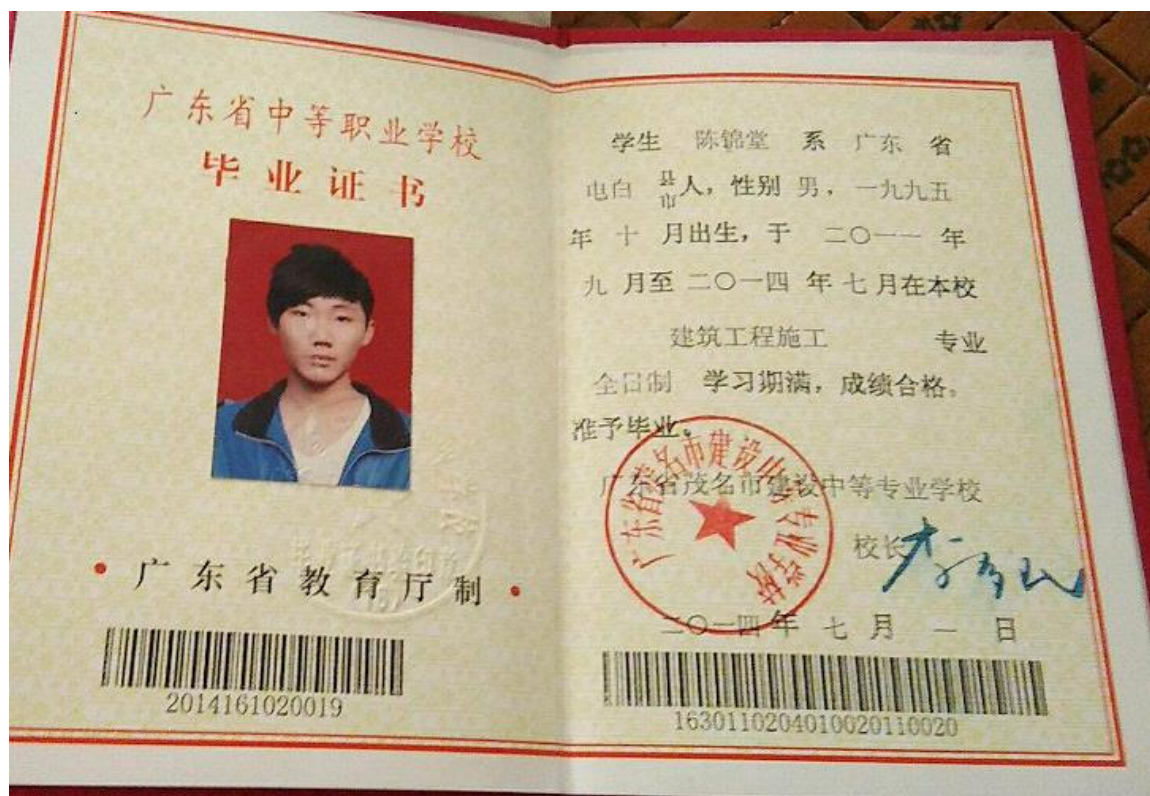 广东省中等职业学校
毕业证书
广东省教育厅制
2014161020019
学生 陈锦堂 系 广东 省
电白 县市人，性别 男，一九九五
年 十 月出生，于 二〇一一 年
九 月至 二〇一四 年 七 月在本校
建筑工程施工 专业
全日制 学习期满，成绩合格。
准予毕业。
广东省茂名市建设中等专业学校
广东省茂名市建设中等专业学校
校长
二〇一四年 七 月 一 日
1630110204010020110020